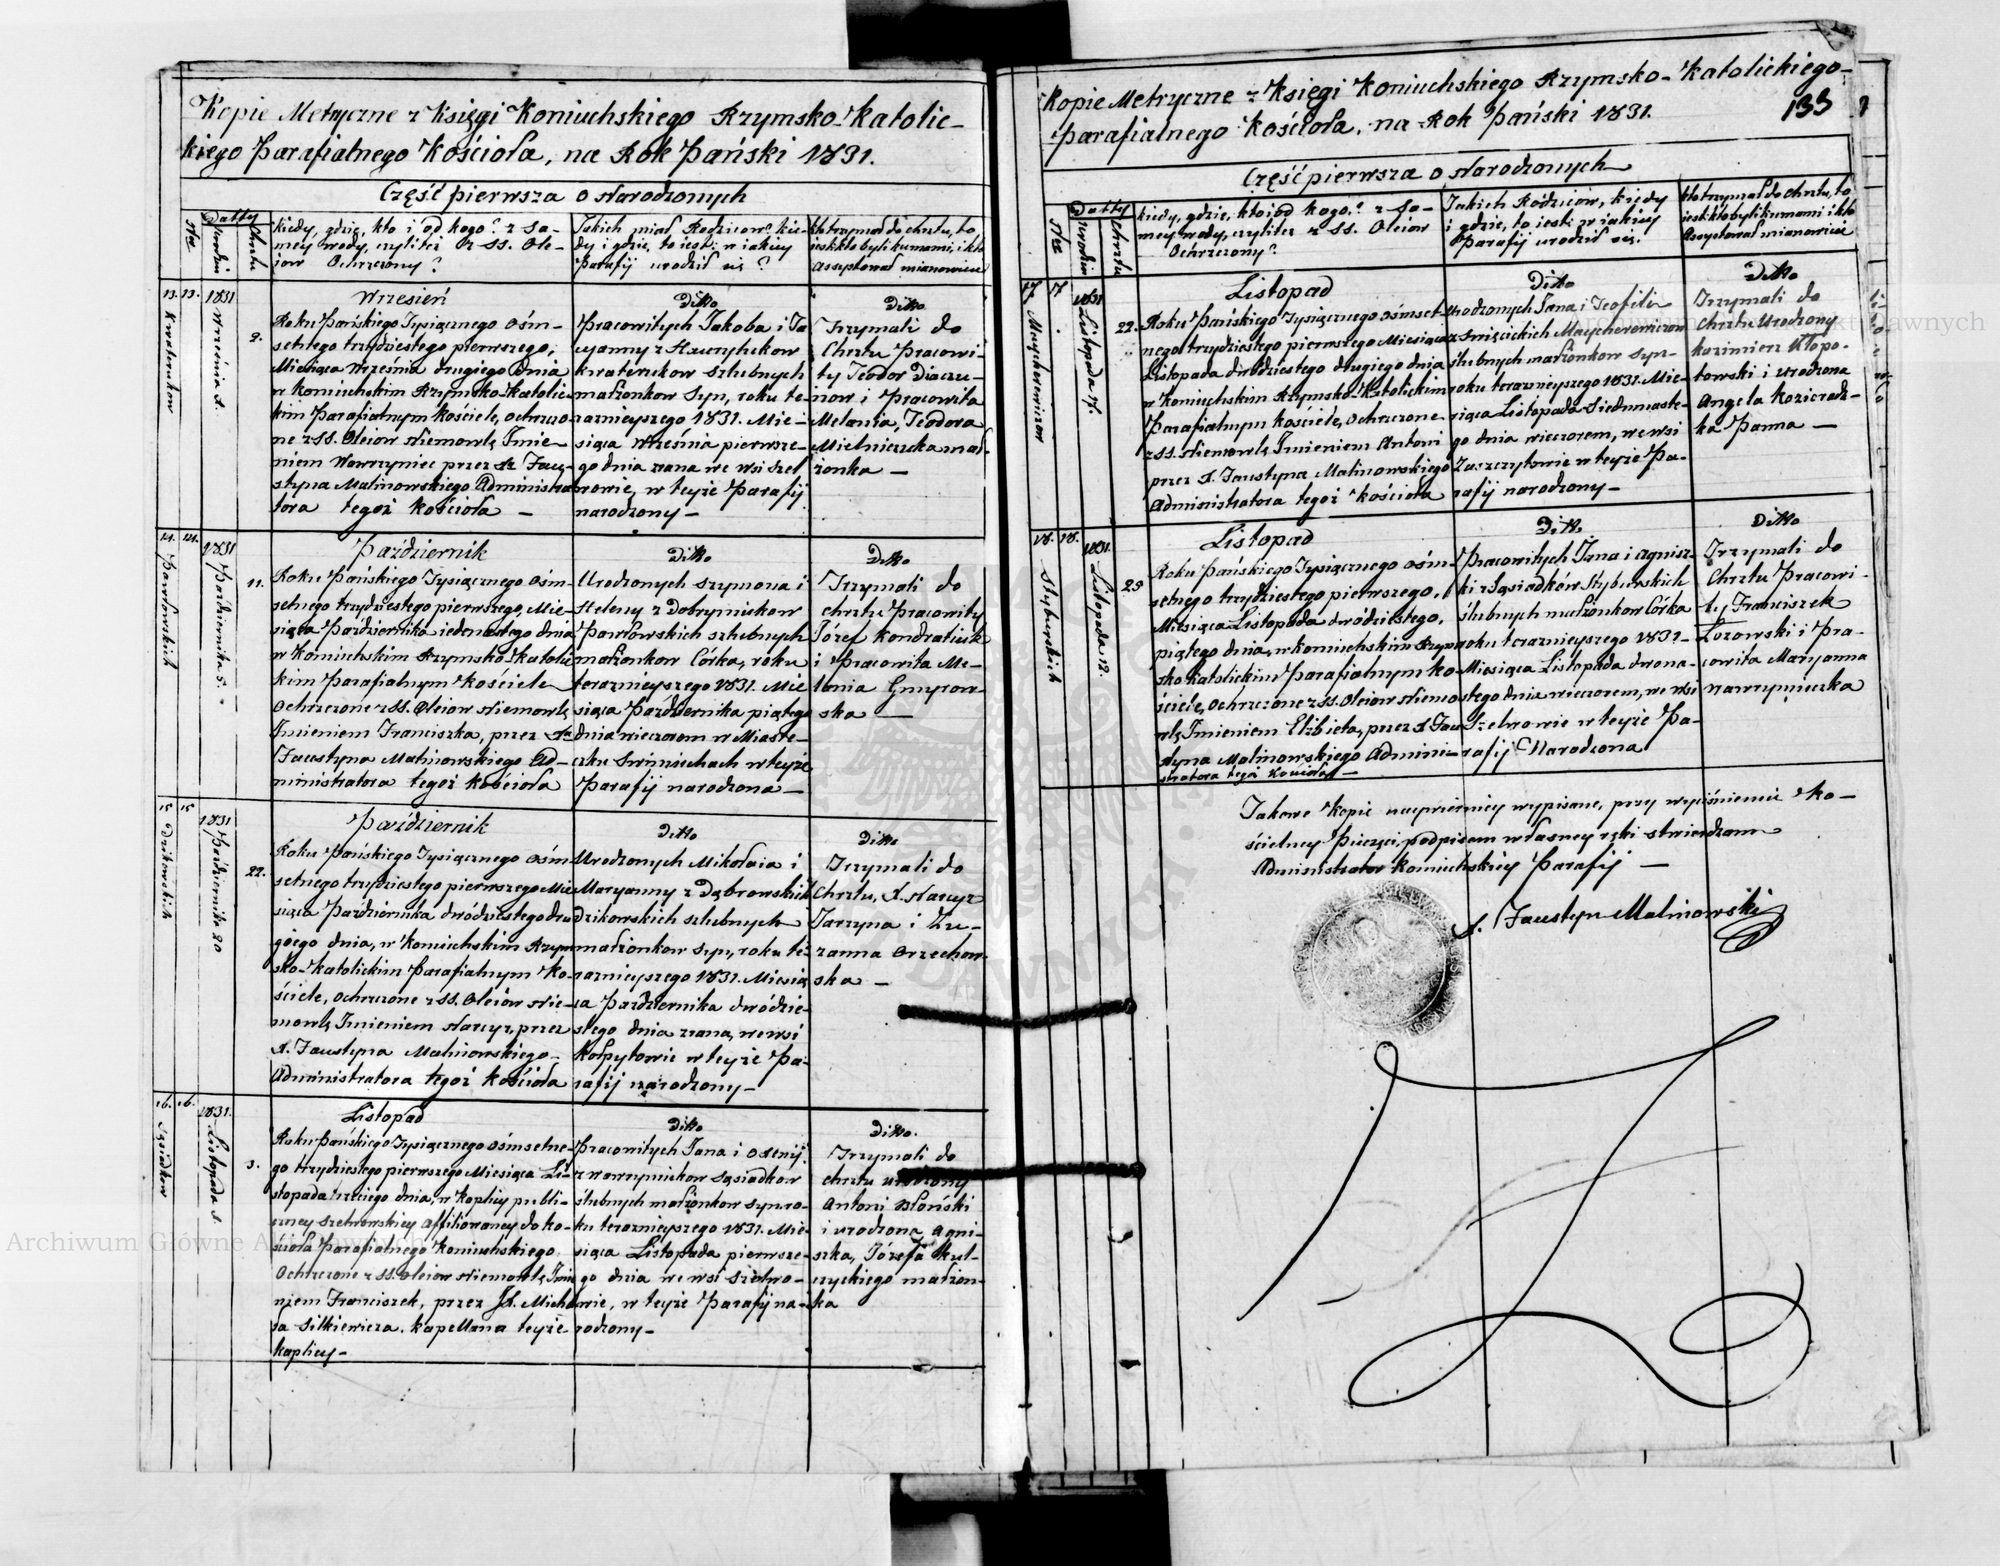 Kopie Metryczne z Księgi Koniuchskiego Rzymsko-Katolic-
kiego Parafialnego Kościoła, na Rok Pański 1831.
Część pierwsza o Narodzonych
Datty
Nter
Urodzin
Chrztu
kiedy, gdzie, kto i od kogo? z sa-
mey wody, czyliteż z SS. Ole-
iow Ochrzczony?
Jakich miał Rodzicow? kie-
dy i gdzie, to iest: w iakiey
Parafij urodził się?
kto trzymał do chrztu, to
iest: kto byli kumami, i kto
assystował mianowicie
13. 13.
Kwaterukow
1831 Września 1.
2.
Wrzesień
Roku Pańskiego Tysiącznego ośm-
setnego trzydziestego pierwszego,
Miesiąca Września drugiego dnia
w Koniuchskim Rzymsko-Katolic-
kim Parafialnym kościele, ochrzczo-
ne z SS. Oleiow Niemowlę Imie-
niem Wawrzyniec przez X. Fau-
styna Malinowskiego Administra-
tora tegoż Kościoła —
Ditto
Pracowitych Jakoba i Ta-
cyanny z
Kwaterukow szlubnych
małżonkow Syn, roku te-
raznieyszego 1831. Mie-
siąca Września pierwsze-
go dnia zrana we wsi Szel-
wowie, w teyże Parafij
narodzony —
Ditto
Trzymali do
Chrztu Pracowi-
ty Teodor Diaczu-
niow i Pracowita
Melania, Teodora
Mielniczuka mał-
żonka —
14. 14.
Pawłowskich
1831 Października 5.
11.
Październik
Roku Pańskiego Tysiącznego ośm-
setnego trzydziestego pierwszego, Mie-
siąca Października iedenastego dnia
w Koniuchskim Rzymsko-Katolic-
kim Parafialnym Kościele
Ochrzczone z SS. Oleiow Niemowlę
Imieniem Franciszka, przez X.
Faustyna Malinowskiego Ad-
ministratora tegoż Kościoła
Ditto
Urodzonych Szymona i
Heleny z Dobryniukow
Pawłowskich szlubnych
małżonkow Córka, roku
teraznieyszego 1831. Mie-
siąca Października piątego
dnia wieczorem w Miaste-
czku Swiniuchach w teyże
Parafij narodzona —
Ditto
Trzymali do
chrztu Pracowity
Józef Kondratiuk
i Pracowita Me-
lania Gmyrow-
ska —
15 15
Dzikowskich
1831 Października 20
22.
Październik
Roku Pańskiego Tysiącznego ośm-
setnego trzydziestego pierwszego Mie-
siąca Października dwódziestego dru-
giego dnia, w Koniuchskim Rzym-
sko-Katolickim Parafialnym Ko-
ściele, ochrzczone z SS. Oleiów Nie-
mowlę Imieniem Narcyz, przez
X. Faustyna Malinowskiego
Administratora tegoż Kościoła
Ditto
Urodzonych Mikołaia i
Maryanny z Dąbrowskich
Dzikowskich szlubnych
małżonkow Syn, roku te-
raznieyszego 1831. Miesią-
ca Października dwódzie-
stego dnia zrana, we wsi
Kołpytowie w teyże Pa-
rafij narodzony —
Ditto
Trzymali do
Chrztu, X. Narcyz
Jarzyna i Zu-
zanna Orzechow-
ska —
16. 16.
Sąsiadkow
1831. Listopada 1.
3.
Listopad
Roku Pańskiego Tysiącznego ośmsetne-
go trzydziestego pierwszego Miesiąca Li-
stopada trzeciego dnia, w kaplicy publi-
czney Szelwowskiey affiliowaney do ko-
ścioła Parafialnego Koniuchskiego
Ochrzczone z SS. oleiow Niemowlę Imie-
niem Franciszek, przez X. Micha-
ła Silkiewicza. kapellana teyże
kaplicy —
Ditto
Pracowitych Jana i Oxenij
z Wawrzyniukow Sąsiadkow
ślubnych małżonkow syn, ro-
ku teraznieyszego 1831. Mie-
siąca Listopada pierwsze-
go dnia we wsi Szelwo-
wie, w teyże Parafij na-
rodzony —
Ditto.
Trzymali do
chrztu urodzony
Antoni Błoński
i urodzona Agni-
szka, Józefa Kul-
czyckiego małżon-
ka
Kopie Metryczne z Księgi Koniuchskiego Rzymsko-Katolickiego
Parafialnego Kościoła, na Rok Pański 1831.
135
Część pierwsza o Narodzonych
Datty
Nter
Urodzin
Chrztu
kiedy, gdzie, kto i od kogo? z sa-
mey wody, czyliteż z SS. Oleiow
Ochrzczony?
Jakich Rodziców, kiedy
i gdzie, to iest: w iakiey
Parafij urodził się?
kto trzymał do chrztu, to
iest: kto byli kumami i kto
Assystował mianowicie
17. 17
Maycherowiczow
1831 Listopada 17.
22.
Listopad
Roku Pańskiego Tysiącznego ośmset-
nego trzydziestego pierwszego Miesiąca
Listopada dwódziestego drugiego dnia
w Koniuchskim Rzymsko-Katolickim
Parafialnym kościele, ochrzczone
z SS. Niemowlę Imieniem Antoni
przez X. Faustyna Malinowskiego
Administratora tegoż Kościoła
Ditto
Urodzonych Jana i Teofili
z Swięcickich Maycherowiczow
ślubnych małżonkow Syn,
roku teraznieyszego 1831. Mie-
siąca Listopada Siedmnaste-
go dnia wieczorem, we wsi
Zaszczytowie w teyże Pa-
rafij narodzony —
Ditto
Trzymali do
Chrztu Urodzony
Kazimierz Kłopo-
towski i urodzona
Angela Kozieradz-
ka Panna —
18. 18.
Styburskich
1831. Listopada 12.
25
Listopad
Roku Pańskiego Tysiącznego ośm-
setnego trzydziestego pierwszego,
Miesiąca Listopada dwódziestego,
piątego dnia, w koniuchskim Rzym-
sko katolickim Parafialnym Ko-
ściele, ochrzczone z SS. Oleiow Niemo-
wlę Imieniem Elżbieta, przez X. Fau-
styna Malinowskiego Admini-
stratora tegoż Kościoła —
Ditto
Pracowitych Jana i Agnisz-
ki z Sąsiadków Styburskich
ślubnych małżonkow Córka
roku teraznieyszego 1831-
Miesiąca Listopada dwona-
stego dnia wieczorem, we wsi
Szelwowie w teyże Pa-
rafij Narodzona
Ditto
Trzymali do
Chrztu Pracowi-
ty Franciszek
Łozowski i Pra-
cowita Maryanna
Wawrzyniczka
Takowe Kopie nayrzetelniey wypisane, przy wyciśnieniu Ko-
ścielney Pieczęci, podpisem własney ręki stwierdzam
Administrator Koniuchskiey Parafij —
X. Faustyn Malinowski
Archiwum Główne Akt Dawnych